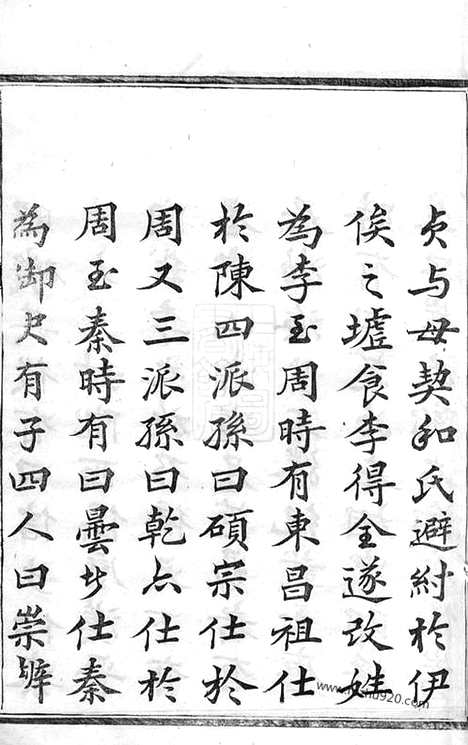 貞与母契和氏避紂於伊
侯之墟食李得全遂改姓
為李至周時有東昌祖仕
於陳四派孫曰碩宗仕於
周又三派孫曰乾六仕於
周至秦時有曰曇㫖仕秦
為御史有子四人曰崇